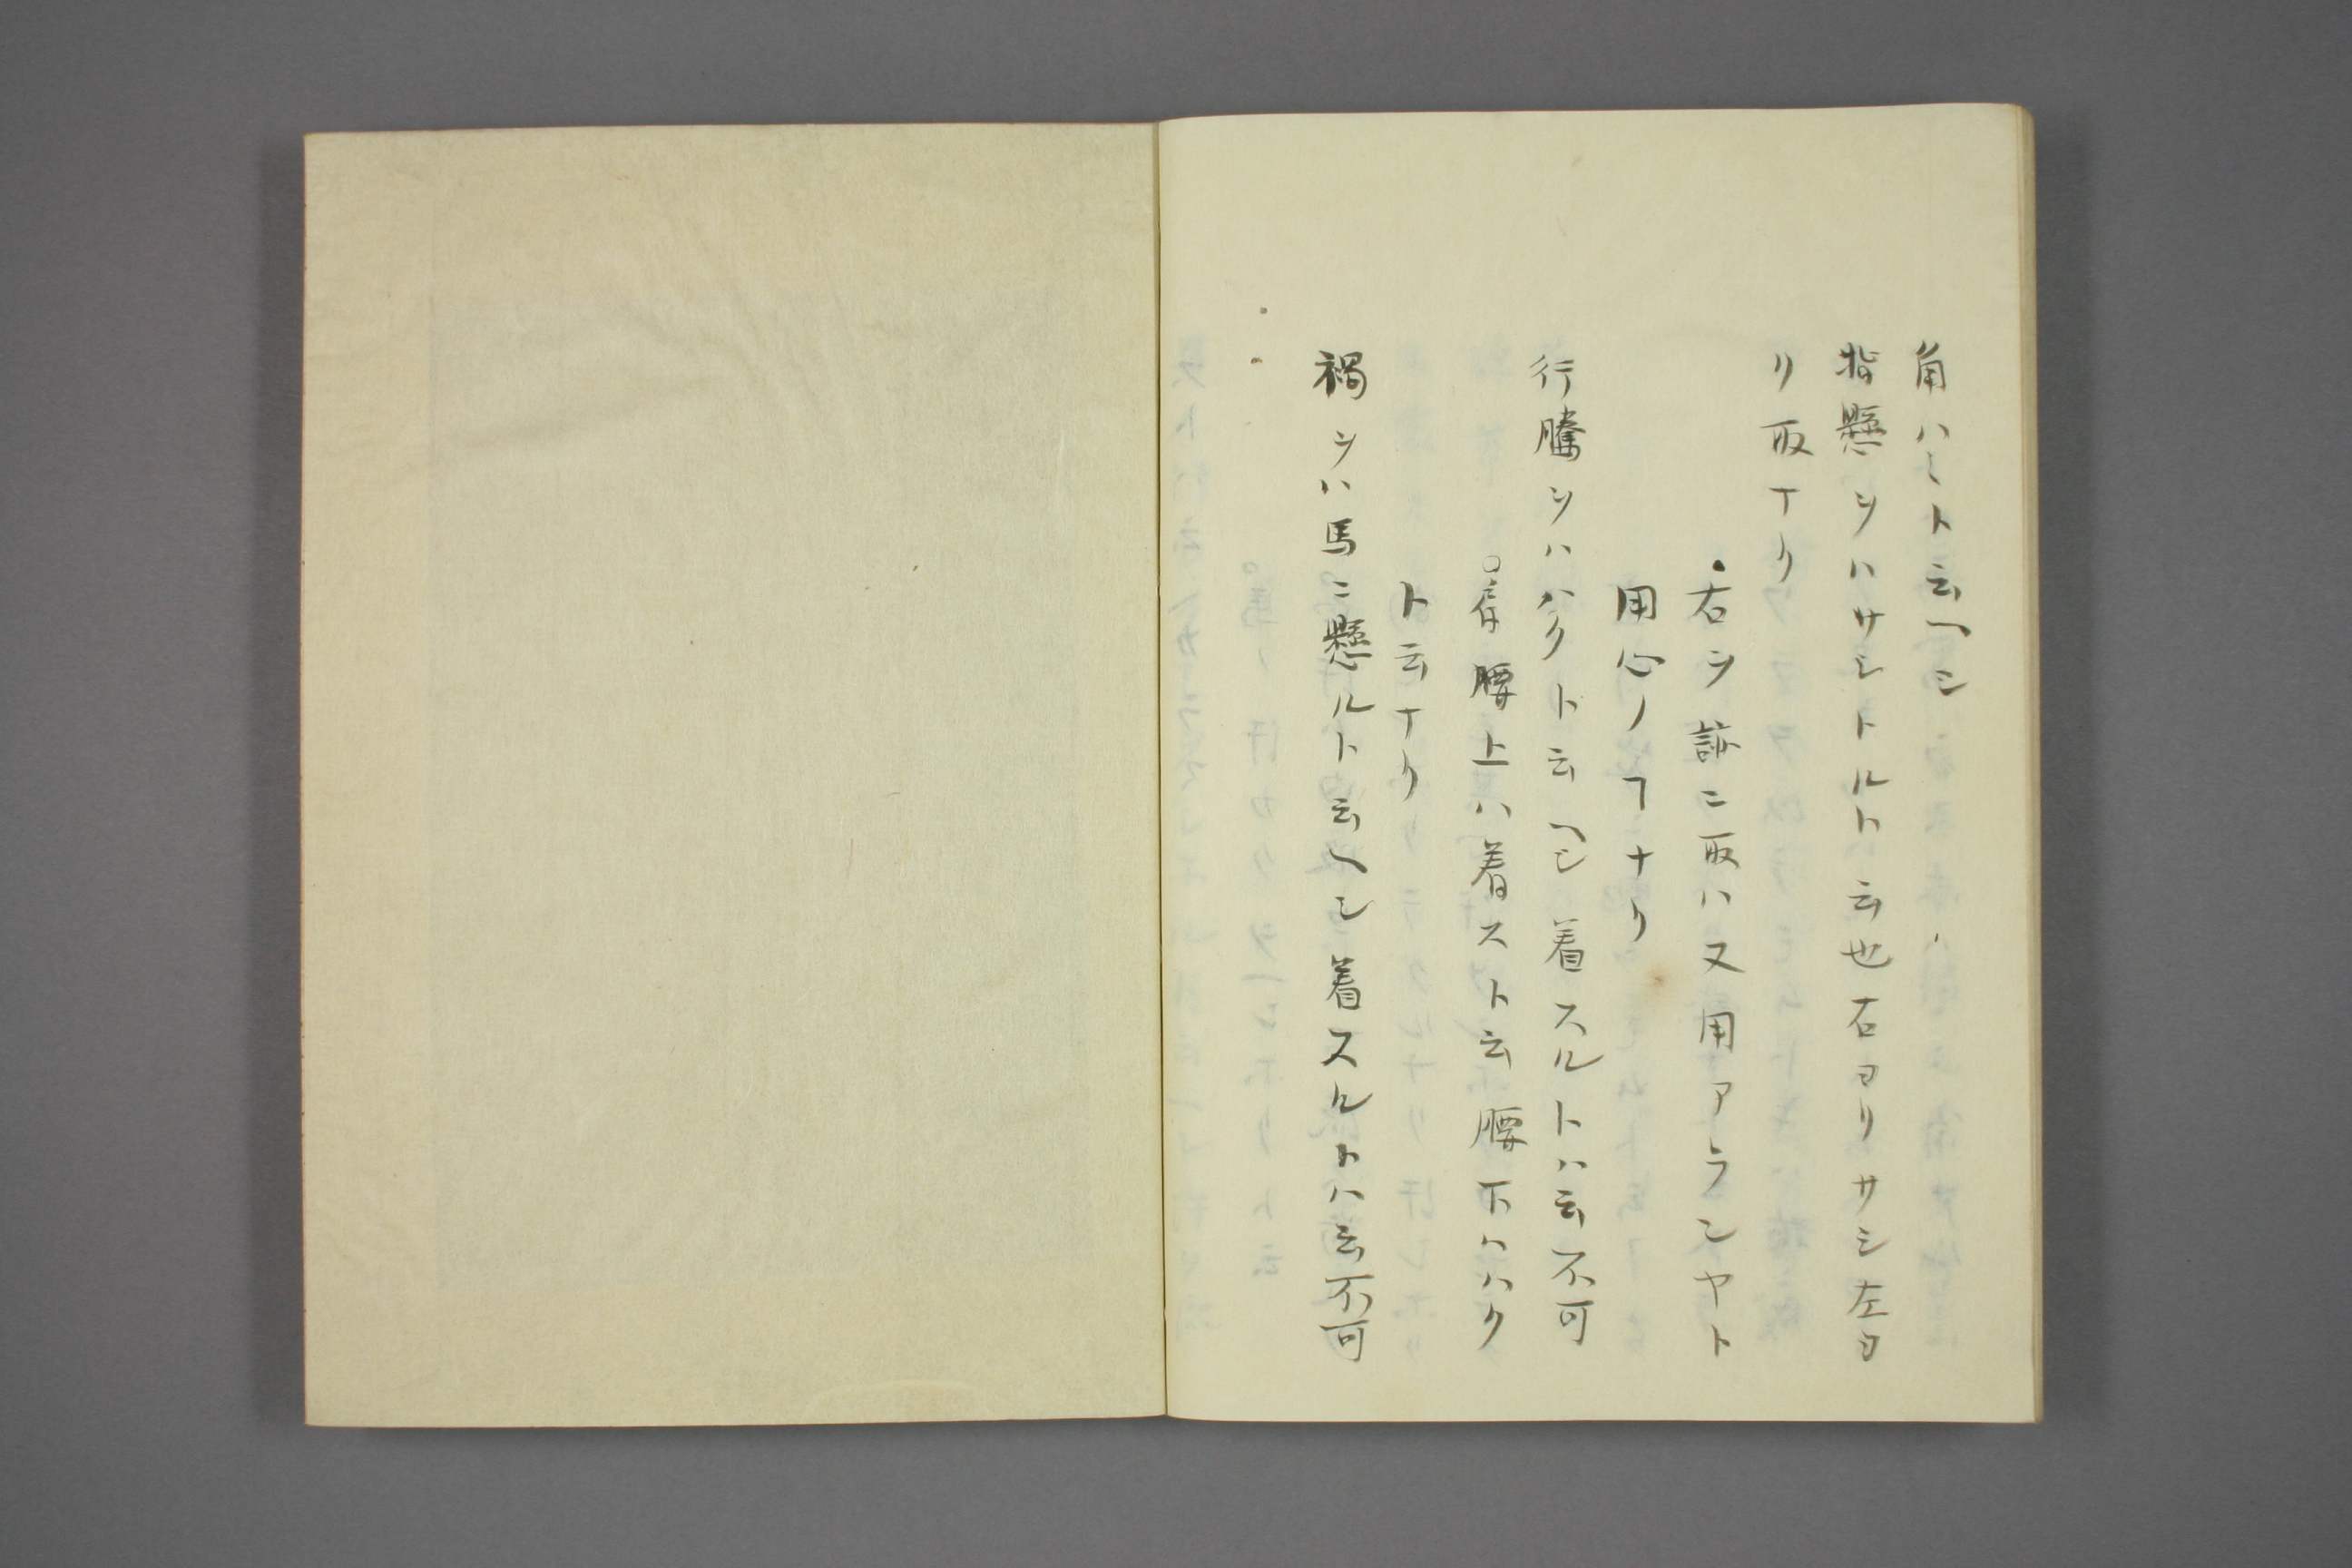 角ハミト云ヘシ
指懸ヲハサシトルト云也右ヨリサシ左ヨ
リ取ナリ
・右ヲ跡ニ取ハ又用アランヤト
用心ノヿナリ
行騰ヲハハクト云ヘシ着スルトハ云不可
○腰上ハ着スト云腰下ハハク
ト云ナリ
ヲハ馬ニ懸ルト云ヘシ着スルトハ云不可